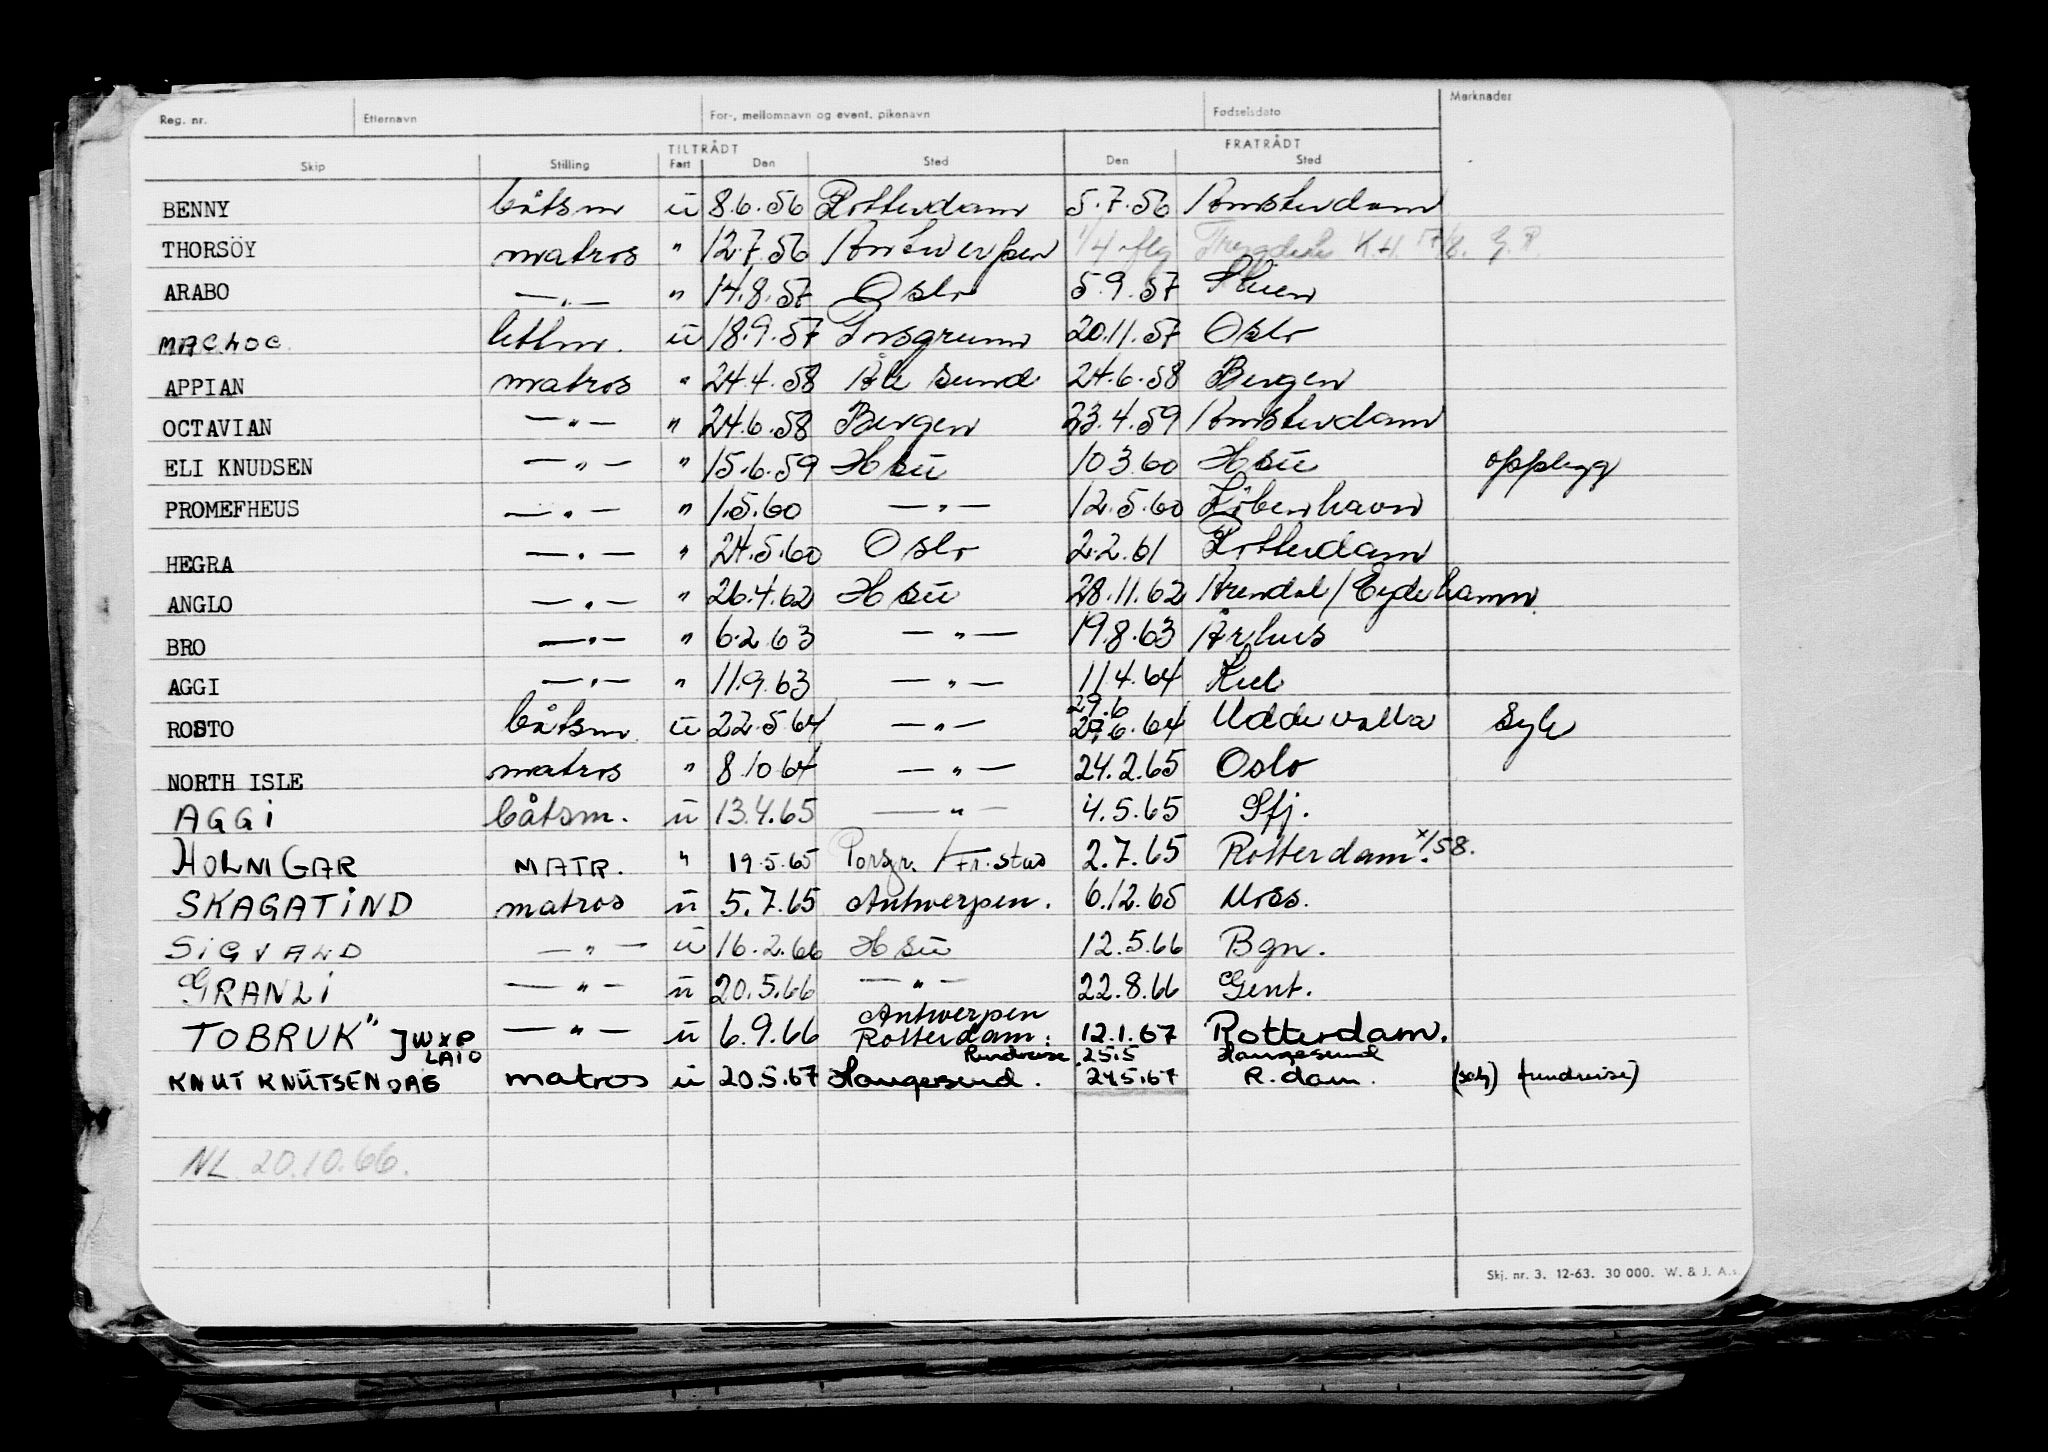 Reg. nr. Etternavn For-, mellomnavn og event. pikenavn Fødselsdato Merknader
TILTRÅDT FRATRÅDT
Skip Stilling Fart Den Sted Den Sted
BENNY båtsm ū 8.6.56 Rotterdam 5.7.56 Amsterdam
THORSÖY matros " 12.7.56 Antwerpen 1/4 K.H. 17/8. G.R.
ARABO —"— " 14.8.57 Oslo 5.9.57 Skien
MACHOC lettm. ū 18.9.57 Porsgrunn 20.11.57 Oslo
APPIAN matros " 24.4.58 Ålesund 24.6.58 Bergen
OCTAVIAN —"— " 24.6.58 Bergen 23.4.59 Amsterdam
ELI KNUDSEN —"— " 15.6.59 Hsū 10 3.60 Hsū opplegg
PROMEFHEUS —"— " 1.5.60 —"— 12.5.60 København
HEGRA —"— " 24.5.60 Oslo 2.2.61 Rotterdam
ANGLO —"— " 26.4.62 Hsū 28.11.62 Arendal/Eydehamn
BRO —"— " 6.2.63 —"— 19.8.63 Århus
AGGI —"— " 11.9.63 —"— 11 4.64 Kiel
29.6
ROSTO båtsm ū 22.5.64 —"— 27.6.64 Uddevalla syk
NORTH ISLE matros " 8.10 64 —"— 24.2.65 Oslo
AGGI båtsm. ū 13.4.65 —"— 4.5.65 Sfj.
HOLMGAR MATR. " 19.5.65 Porsgr. / Fr.stad 2.7.65 Rotterdam. x/58.
SKAGATIND matros ū 5.7.65 Antwerpen. 6.12.65 Moss.
SIGVALD —"— ū 16.2.66 Hsū 12.5.66 Bgn.
GRANLI —"— ū 20.5.66 —"— 22.8.66 Gent.
Antwerpen
TOBRUK" ]WXP —"— ū 6.9.66 Rotterdam: 12.1.67 Rotterdam.
LAIO Rundreise 25.5 Haugesund
KNUT KNUTSEN OAS matros ū 20.5.67 Haugesund. 24.5.67 R.dam. (rundreise)
NL 20.10.66.
Skj. nr. 3. 12-63. 30 000. W. & J. A.s.